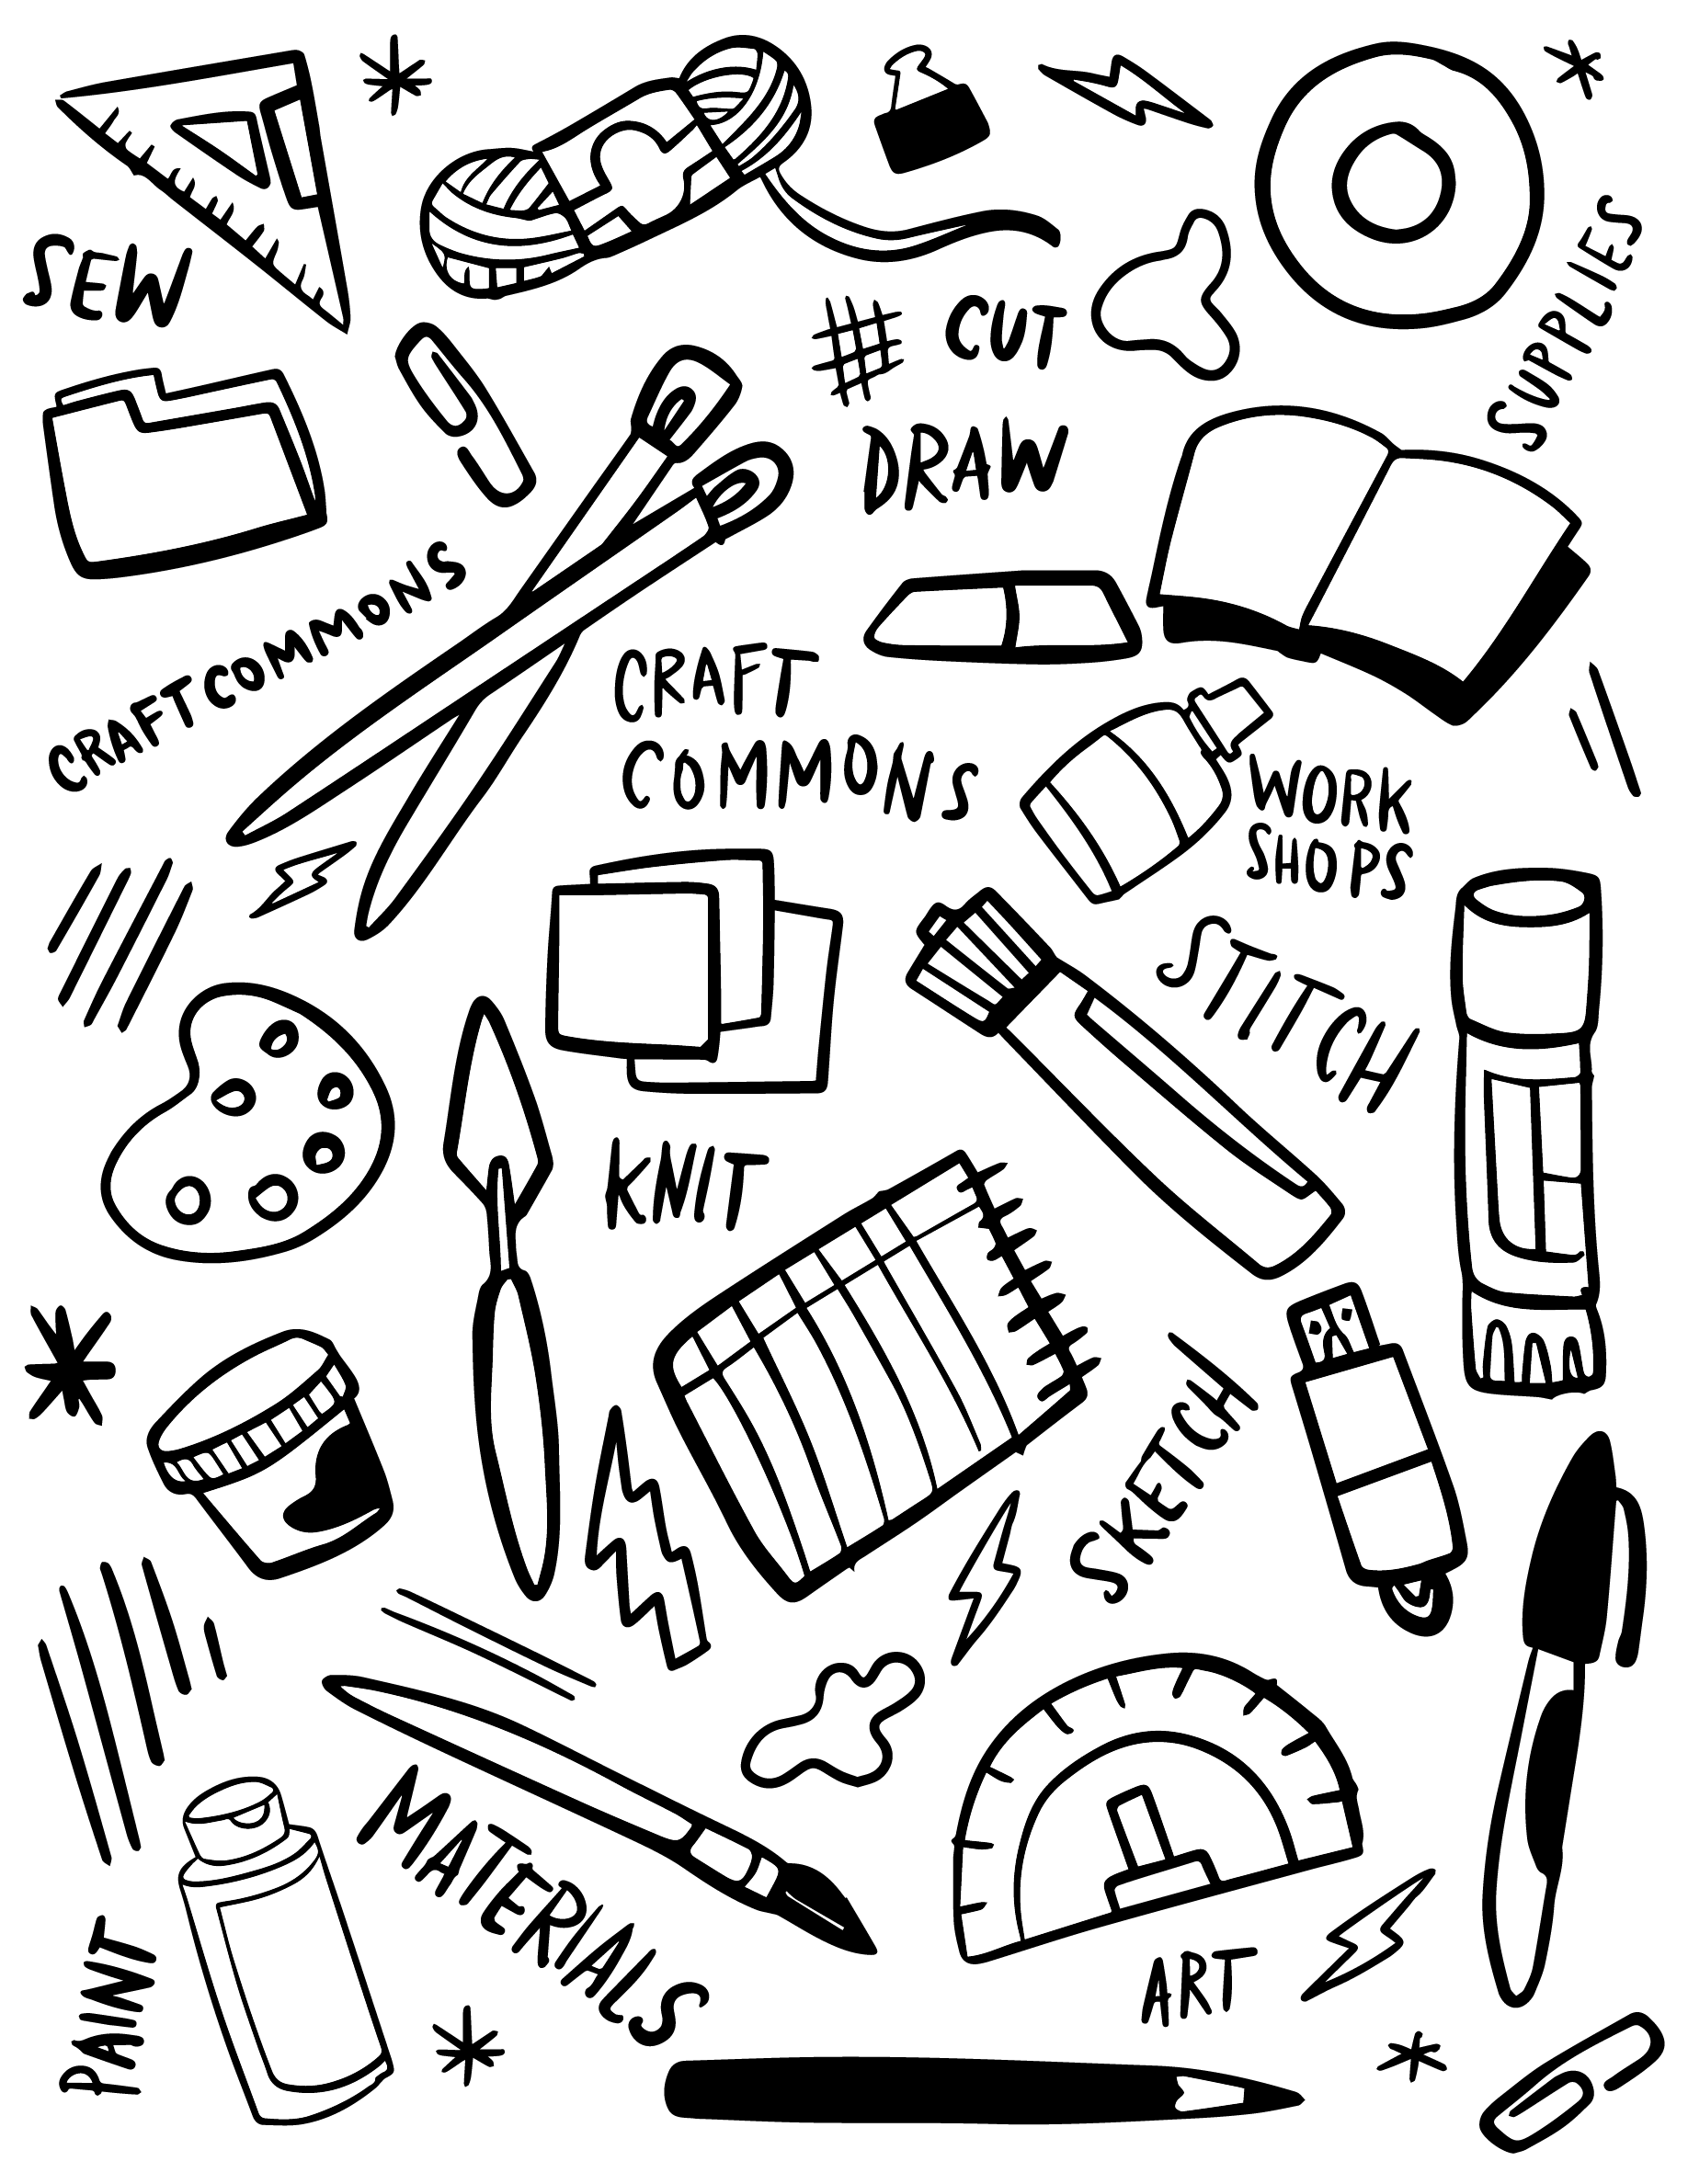 SEW
# CUT
SUPPLIES
DRAW
CRAFT COMMONS
CRAFT
COMMONS
WORK
SHOPS
STITCH
KNIT
SKETCH
MATERIALS
PAINT
ART